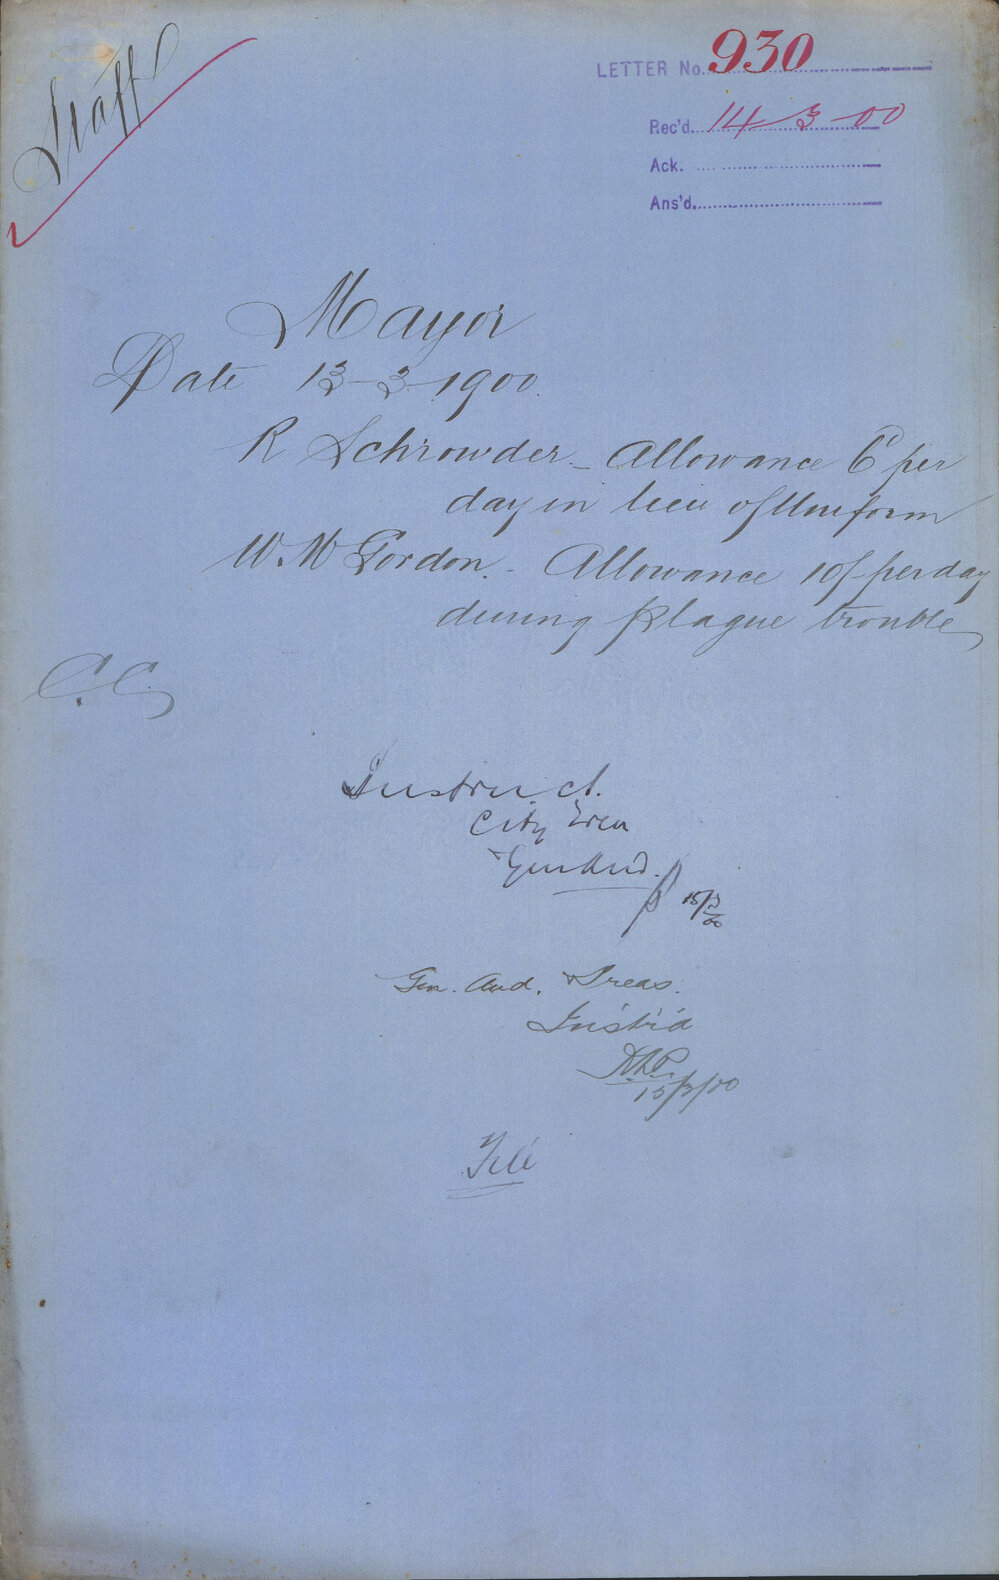 Staff
LETTER No. 930
Rec'd. 14-3-00
Ack.
Ans'd.
Mayor
Date 13-3-1900.
R Schrowder - Allowance 6 per
day in lieu of Uniform
W. W Gordon - Allowance 10/ per day
during Plague trouble
C.C.
Instruct.
City Treas
15/3/00
Gen. Aud. Treas.
Inst'd
15/3/00
File